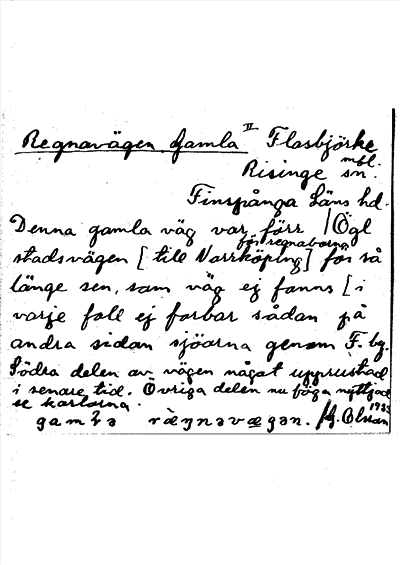 Regnavägen, Gamla II Flasbjörke
mbl.
Risinge sn.
Finspånga Läns hd.
Denna gamla väg var förr / Ögl
för regnaborna
stadsvägen [till Norrköping] för så
länge sen, som väg ej fanns [i
varje fall ej farbar sådan på
andra sidan sjöarna genom F. by.
Södra delen av vägen något upprustad
i senare tid. Övriga delen nu föga nyttjad
se kartorna.
1933
rægnavægən. G. Olson